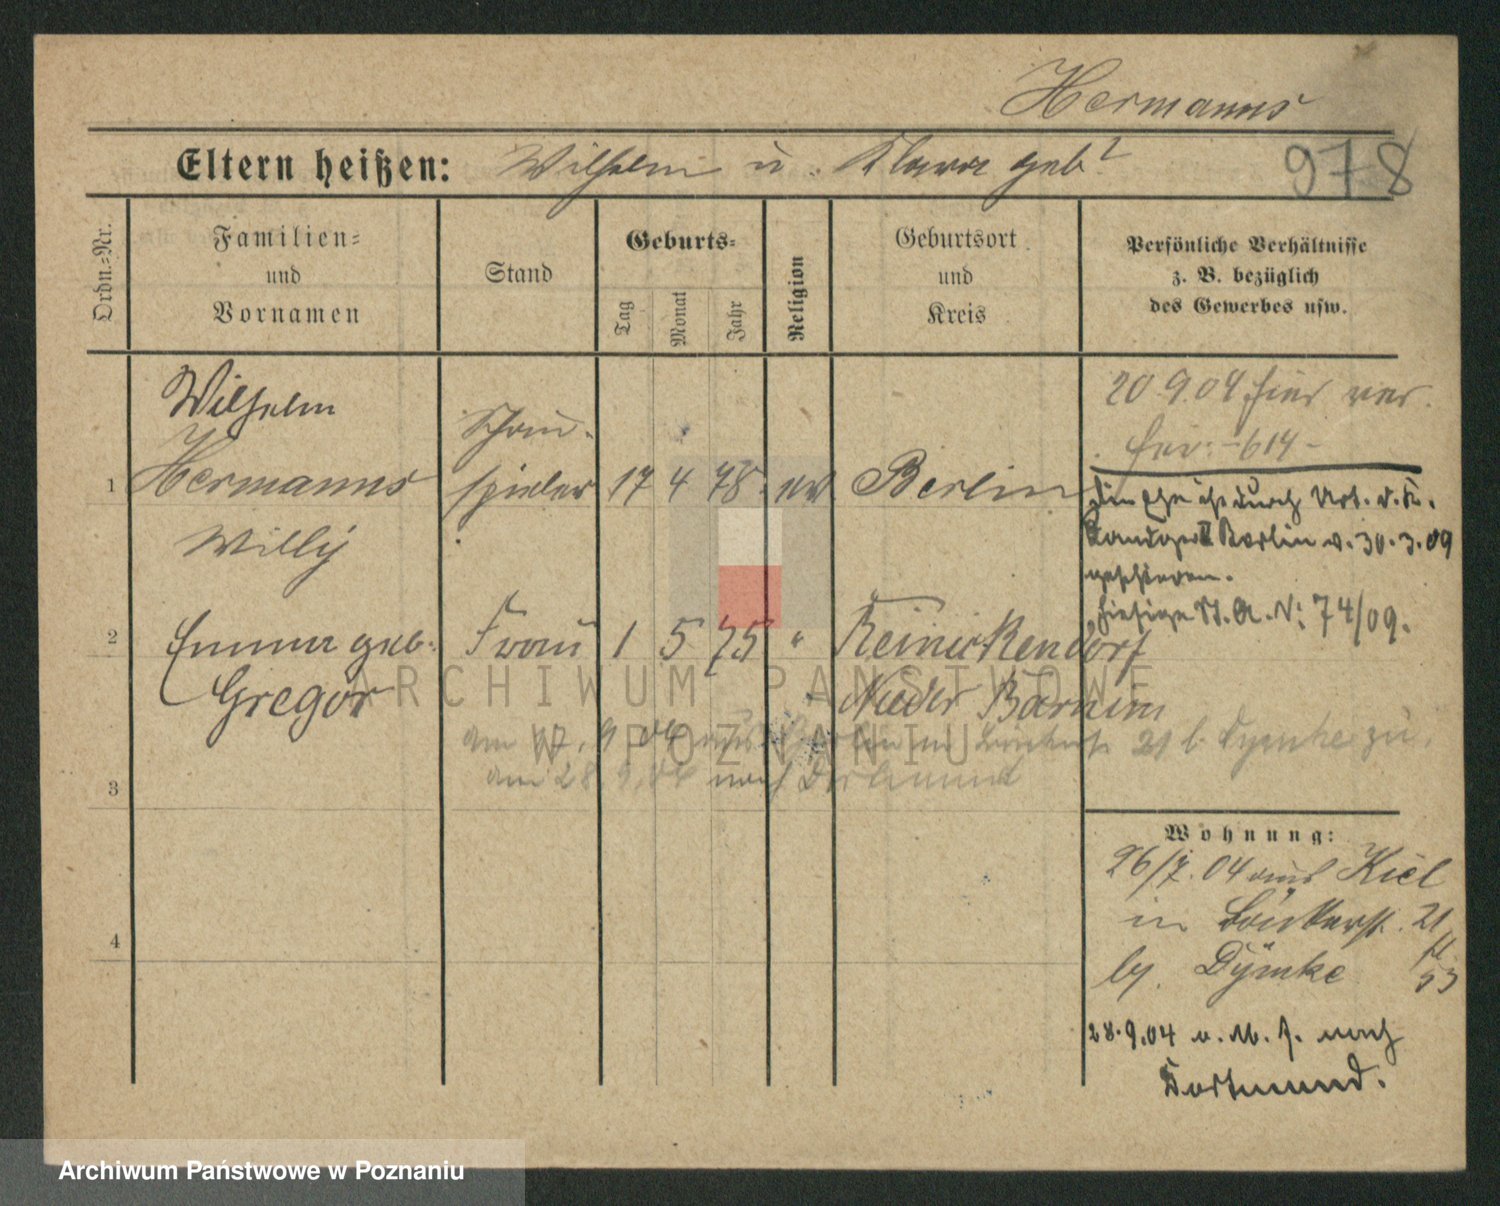 Hermanns
Eltern heißen: Wilhelm u. Klara geb?
978
Ordn.-Nr.
Familien- und Vornamen
Stand
Geburts-
Tag
Monat
Jahr
Religion
Geburtsort und Kreis
Persönliche Verhältnisse
z. B. bezüglich
des Gewerbes usw.
Wilhelm
Schau-
1 Hermanns spieler 17 4 78 ev Berlin
Willy
2 Emma geb. Frau 1 5 75 " Reinickendorf
Gregor Nieder Barnim
am 17. 9 04 aus Berlin in 21 b. Dymke zu
am 28. 9. 04 nach Dortmund
3
4
20.9.04 hier ver.
-614-
Die Ehe ist durch Urt. d. K.
Landger II Berlin v. 30.3.09
geschieden.
hiesige St. A. N: 74/09.
Wohnung:
26/7. 04 aus Kiel
in 21
by. Dymke 53
28.9.04 nach
Dortmund.
ARCHIWUM PAŃSTWOWE
W POZNANIU
Archiwum Państwowe w Poznaniu